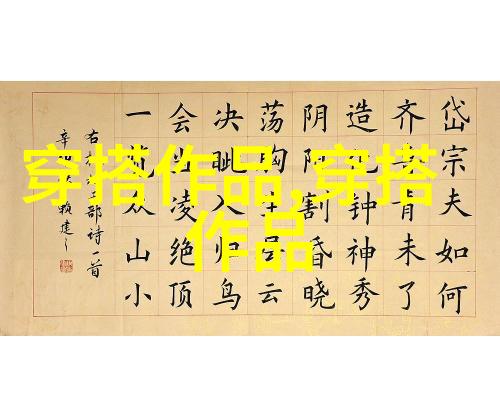 穿搭作品,穿搭
作品
岱宗夫如何
齐鲁青未了
造化钟神秀
阴阳割昏晓
荡胸生云
决眦入归鸟
会当凌绝顶
一览众山小
右杜工部诗一首
辛 赖建